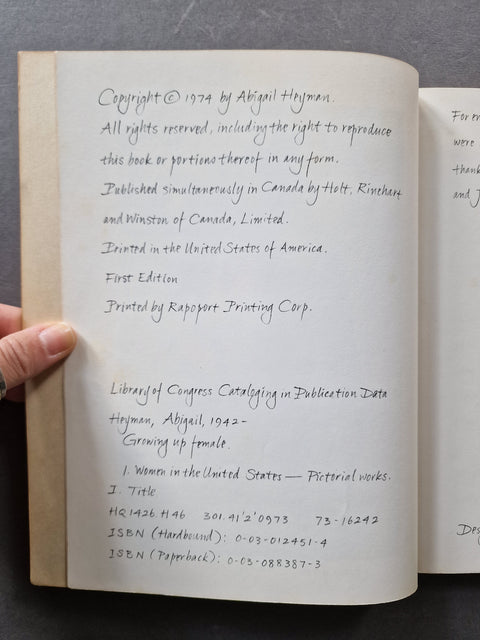 Copyright © 1974 by Abigail Heyman.
All rights reserved, including the right to reproduce
this book or portions thereof in any form.
Published simultaneously in Canada by Holt, Rinehart
and Winston of Canada, Limited.
Printed in the United States of America.
First Edition
Printed by Rapoport Printing Corp.
Library of Congress Cataloging in Publication Data
Heyman, Abigail, 1942-
Growing up female.
1. Women in the United States — Pictorial works.
I. Title
HQ1426.H46 301.41'2'0973 73-16242
ISBN (Hardbound): 0-03-012451-4
ISBN (Paperback): 0-03-088387-3
For
were
and